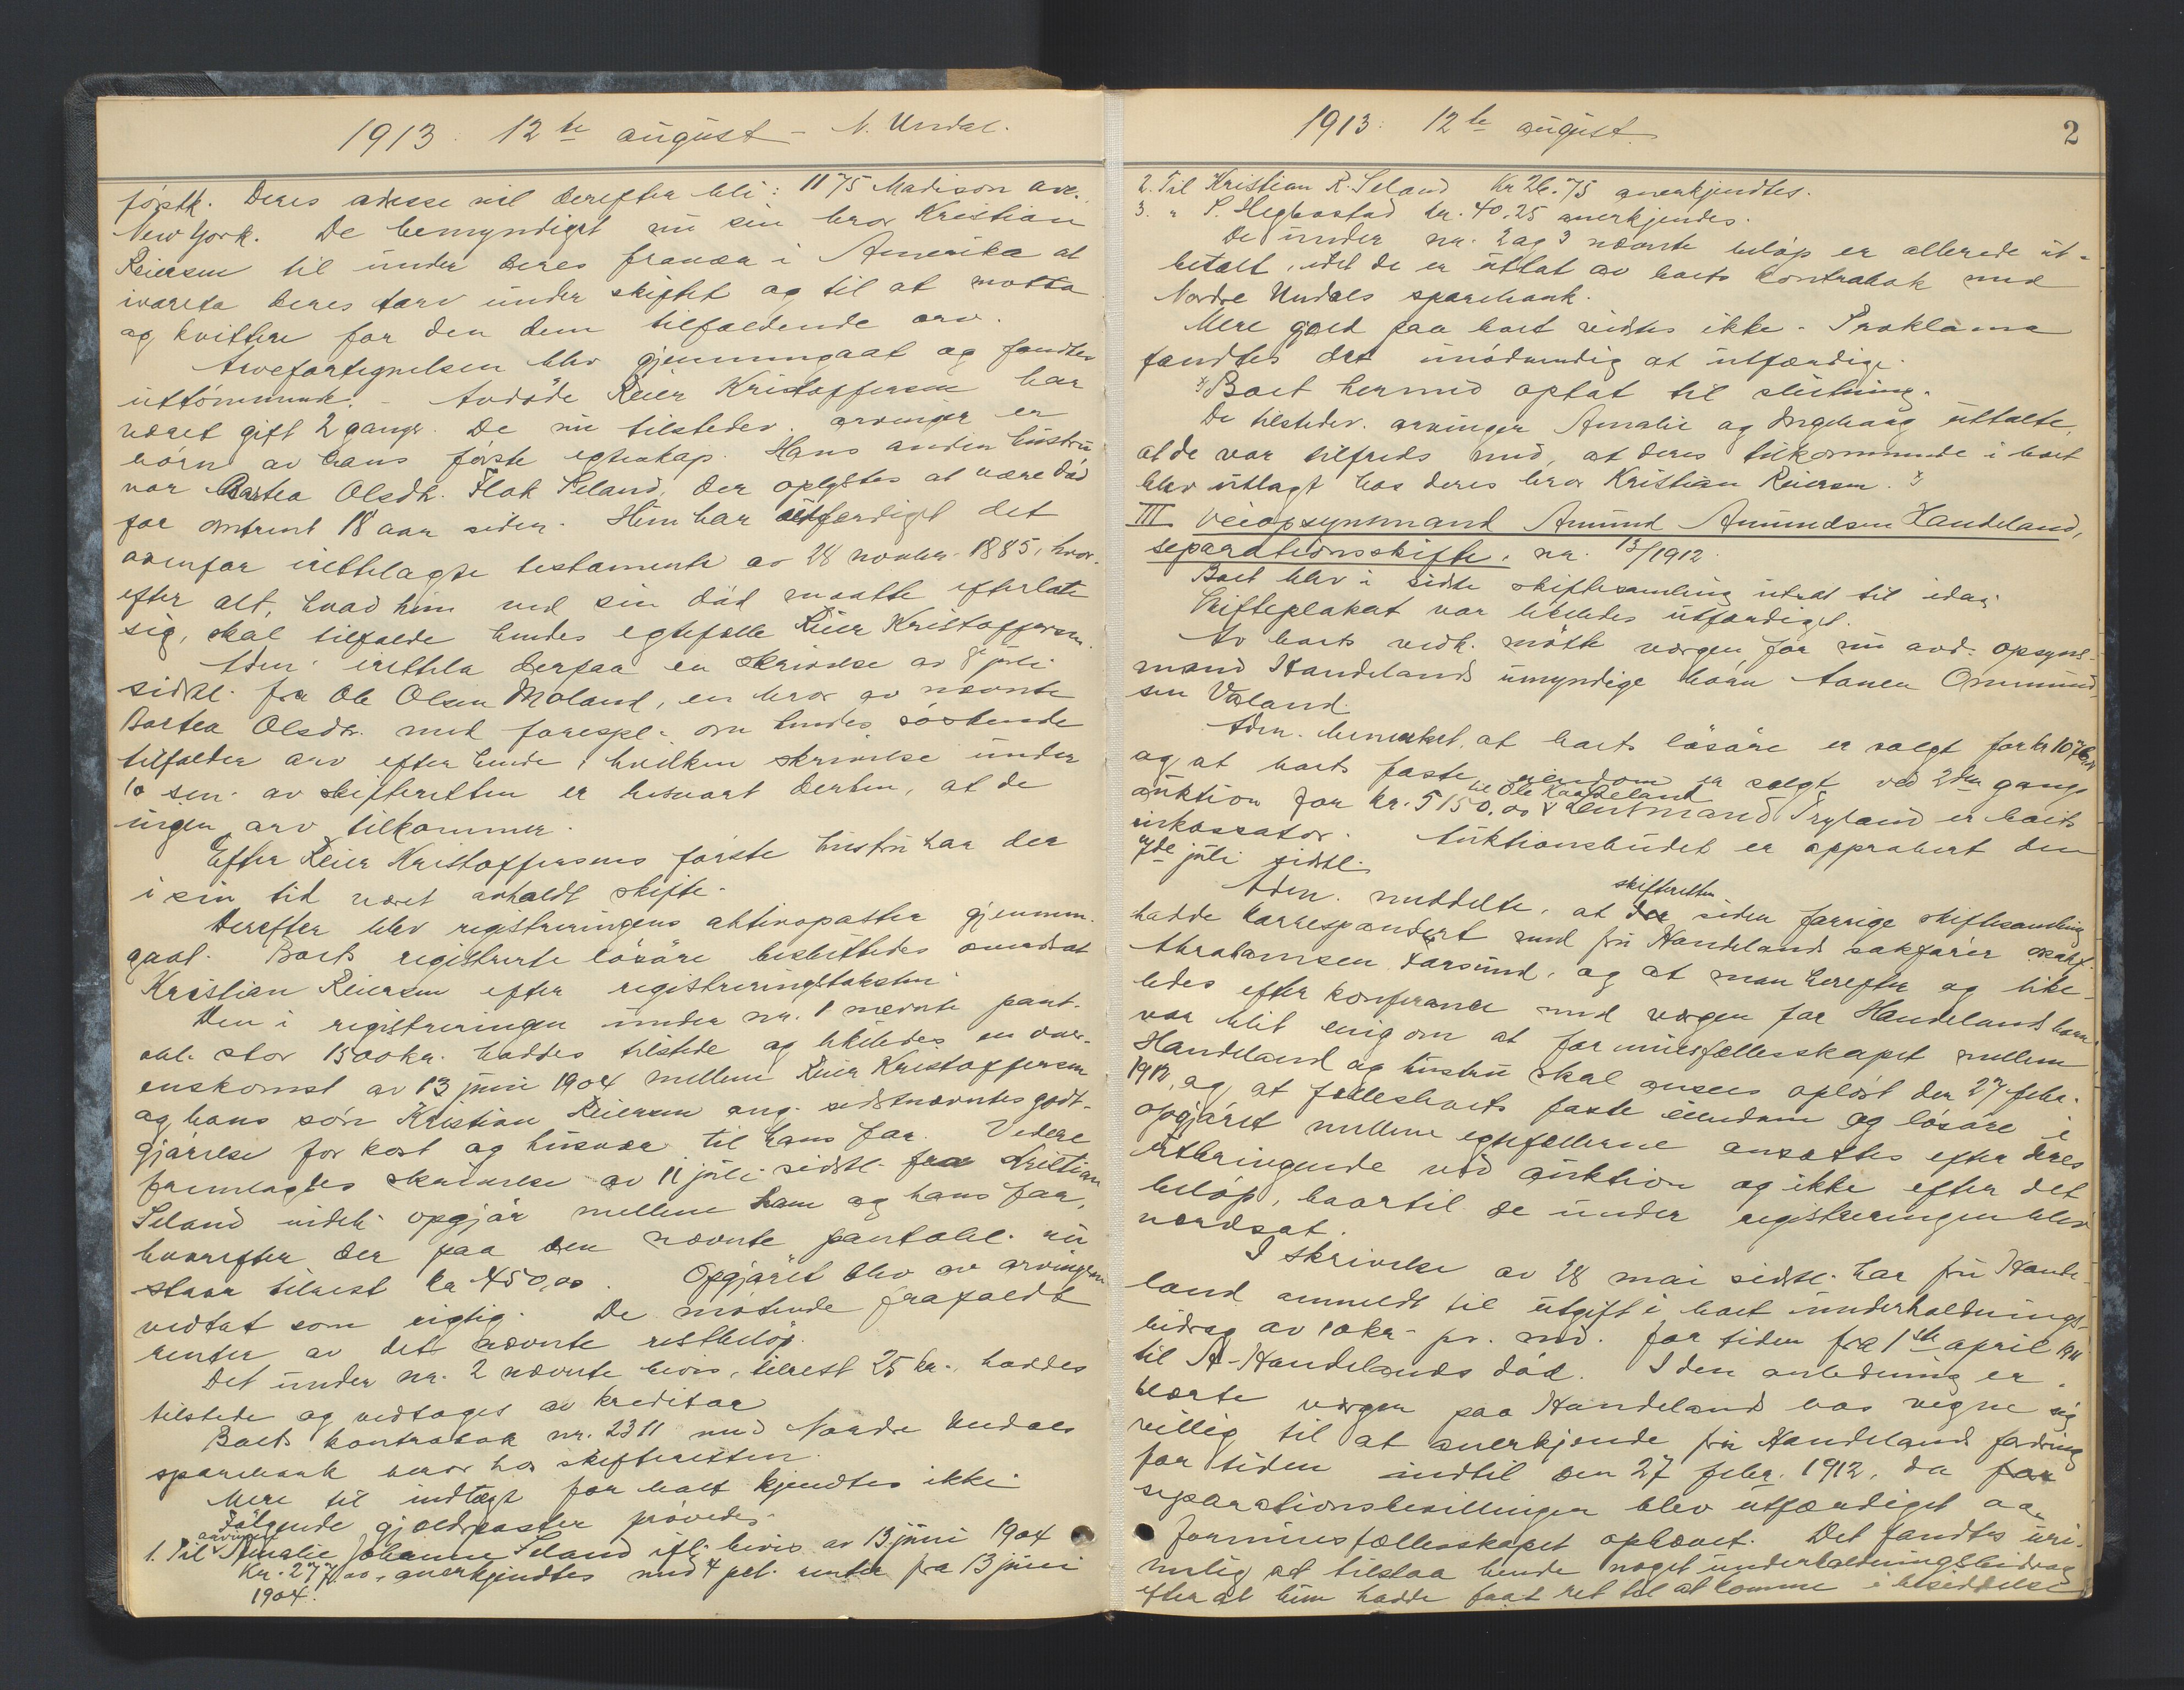 1913. 12te august - N. Undal.
førstk. Deres adresse vil derefter bli: 1175 Madison ave.
New York. De bemyndiget nu sin bror Kristian
Reiersen til under deres fravær i Amerika at
ivareta deres tarv under skiftet og til at motta
og kvittere for den dem tilfaldende arv.
Arvefortegnelsen blev gjennemgaat og fandtes
uttømmende. - Avdøde Reier Kristoffersen har
været gift 2 gange. De nu tilstedev. arvinger er
børn av hans første egteskap. Hans anden hustru
var Bartea Olsdtr. Flak Seland, der oplystes at være død
for omtrent 18 aar siden. Hun har utfærdiget det
ovenfor irettelagte testamente av 28 novbr. 1885, hvor-
efter alt, hvad hun ved sin død maatte efterlate
sig, skal tilfalde hendes egtefælle Reier Kristoffersen.
Adm. irettela derpaa en skrivelse av 8de juli
sidstl. fra Ole Olsen Moland, en bror av nævnte
Bartea Olsdtr. med forespl. om hendes søskende
tilfalder arv efter hende, hvilken skrivelse under
10 sm. av skifteretten er besvart derhen, at de
ingen arv tilkommer.
Efter Reier Kristoffersens første hustru har der
i sin tid været avholdt skifte.
Derefter blev registreringens aktivaposter gjennem-
gaat. Boets registrerte løsøre besluttedes overdrat
Kristian Reiersen efter registreringstaksten.
Den i registreringen under nr. 1 nævnte pant-
obl. stor 1500 kr. haddes tilstede og likeledes en over-
enskomst av 13 juni 1904 mellem Reier Kristoffersen
og hans søn Kristian Reiersen ang. sidstnævntes godt-
gjørelse for kost og husvær til hans far. Videre
fremlagdes skrivelse av 11 juli sidstl. fra Kristian
Seland vidtl. opgjør mellem ham og hans far,
hvorefter der paa den nævnte pantobl. nu
staar tilrest kr. 450,00. Opgjøret blev av arvingerne
vedtat som rigtig. De møtende frafaldt
renter av det nævnte restbeløp.
Det under nr. 2 nævnte bevis, tilrest 25 kr. haddes
tilstede og vedtoges av kreditor
Boets kontrabok nr. 2311 med Nordre Undals
sparebank beror hos skifteretten.
Mere til indtægt for boet kjendtes ikke.
Følgende gjældsposter prøvedes.
1. Til arvingen Amalie Johanne Seland ifl. bevis av 13. juni 1904
kr. 277,00, anerkjendtes med 4 pct. renter fra 13 juni
1904.
1913. 12te august.
2
2. Til Kristian R. Seland kr 26.75 anerkjendtes.
3. " P. Hegbostad kr. 40,25 anerkjendes.
De under nr. 2 og 3 nævnte beløp er allerede ut-
betalt, idet de er uttat av boets kontrabok med
Nordre Undals sparebank.
Mere gjæld paa boet vidstes ikke. - Proklama
fandtes det unødvendig at utfærdige.
Boet hermed optat til slutning.
De tilstedev. arvinger Amalie og Ingeborg uttalte,
at de var tilfreds med, at deres tilkommende i boet
blev utlagt hos deres bror Kristian Reiersen.
III Veiopsynsmand Amund Amundsen Handeland,
separationsskifte. nr. 13/1912.
Boet blev i sidste skiftesamling utsat til idag.
Skifteplakat var likeledes utfærdiget.
Av boets vedk. møtte vergen for nu avd. opsyns-
mand Handelands umyndige børn Aanen Ommund-
sen Valand.
Adm. bemerket, at boets løsøre er solgt for kr 1076
og at boets faste eiendom er solgt ved 2den gangs
auktion for kr. 5150.00 til Ole Kaddeland Lensmand Tryland er boets
inkassator. Auktionsbudet er approbert den
7de juli sidstl.
Adm. meddelte, at skifteretten siden forrige skiftesamling
hadde korrespondert med fru Handelands sakfører oraf.
Abrahamsen Farsund, og at man herefter og like-
ledes efter konferance med vergen for Handelands barn
var blit enig om at formuesfællesskapet mellem
Handeland og hustru skal ansees opløst den 27. febr.
1912, og at fællesboets faste eiendom og løsøre i
opgjøret mellem egtefællerne ansættes efter deres
utbringende ved auktion og ikke efter det
beløp, hvortil de under registreringen blev
verdsat.
I skrivelse av 28 mai sidstl. har fru Hande-
land anmeldt til utgift i boet underholdnings-
bidrag av 10 kr. pr. md. for tiden fra 1ste april 1911
til A. Handelands død. I den anledning er-
klærte vergen paa Handelands bos vegne sig
villig til at anerkjende fru Handelands fordring
for tiden indtil den 27 febr. 1912, da
separationsbevillingen blev utfærdiget og
formuesfællesskapet ophævet. Det fandtes uri-
melig at tilstaa hende noget underholdningsbidrag
efter at hun hadde faat ret til at komme i besiddelse